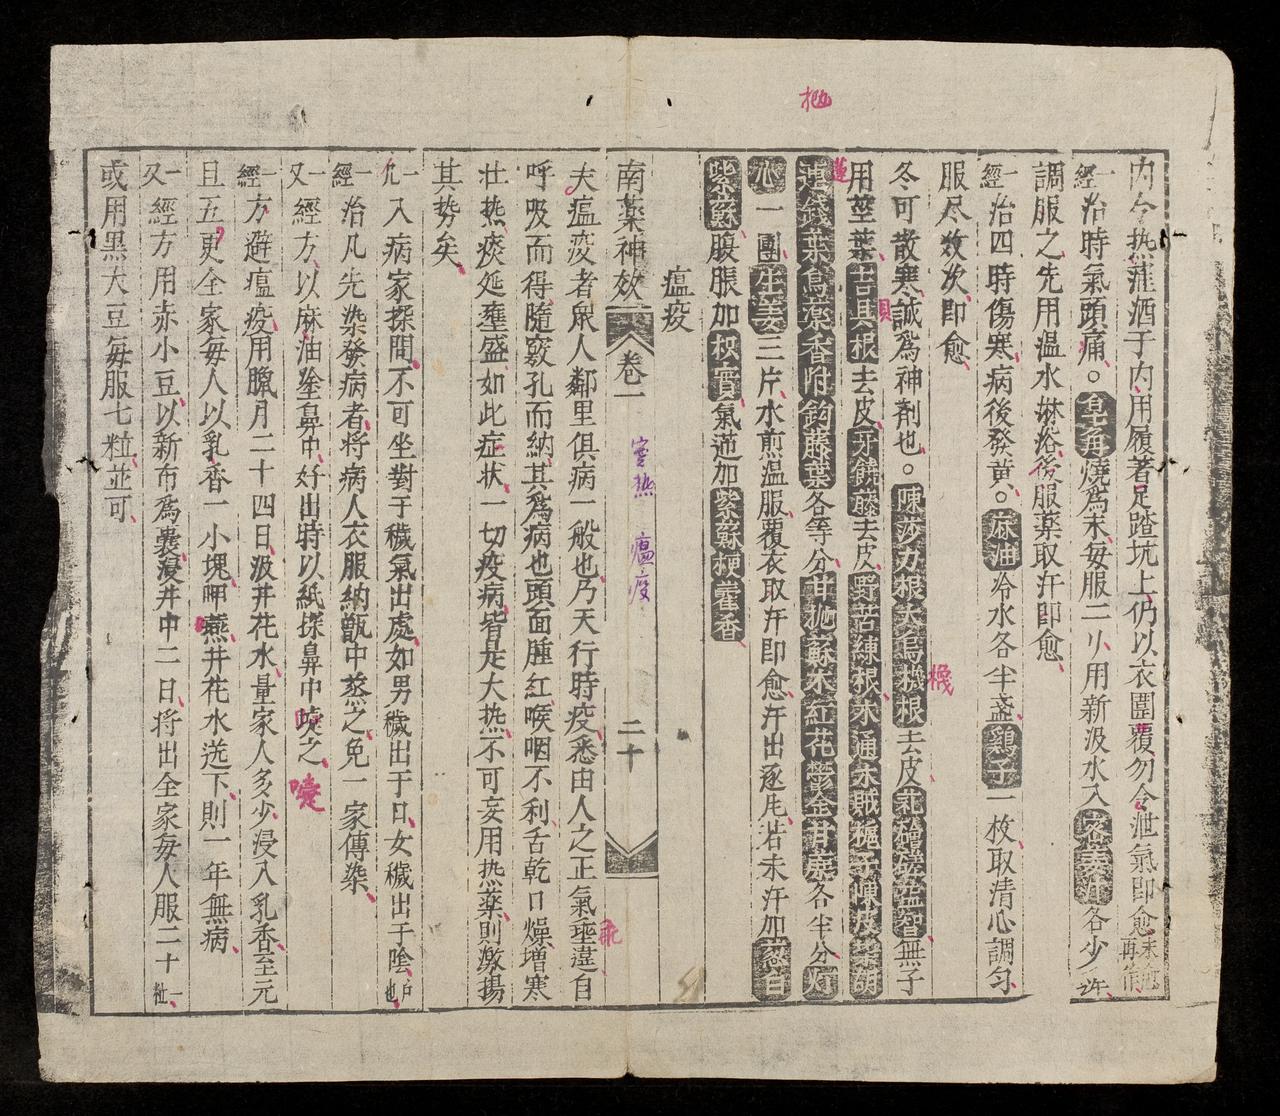 内令热薤酒于内用履著足踏坑上仍以衣圍覆勿令泄氣即愈
一經治時氣頭痛。皂角燒為末每服二刂用新汲水入密姜汁各少許
調服之先用温水淋浴後服藥取汗即愈
一經治四時傷寒病後發黄。麻油冷水各半盞鷄子一枚取清心調匀
服尽数次即愈
冬可散寒誠為神剤也。陳莎力根大烏機根去皮
用莖葉吉具根去皮牙饒藤去皮野苦練根木通
連錢葉烏藥香附鈎藤葉各等分甘
蘇木紅花鬱金甘蔗各半分灯
心一團生姜三片水煎温服覆衣取汗即愈汗出逐尾若未汗加葱白
紫蘇腹脹加枳實氣逆加紫蘇梗藿香
瘟疫
南藥神效 卷一 二十
寔热 瘟疫
夫瘟疫者眾人鄰里俱病一般也乃天行時疫悉由人之正氣
自
呼吸而得隨竅孔而納其為病也頭面腫紅喉咽不利舌乾口燥增寒
壮热痰延壅盛如此症状一切疫病皆是大热不可妄用热藥則激揚
其势矣
一凡入病家探問不可坐對于穢氣出處如男穢出于口女穢出于陰户也
一經治凡先染發病者将病人衣服納甑中蒸之免一家傳染
一又經方以麻油塗鼻中好出時以紙探鼻中嚏之
一經方避瘟疫用臘月二十四日汲井花水量家人多少浸入乳香至元
旦五更全家每人以乳香一小塊呷蘸井花水送下則一年無病
一又經方用赤小豆以新布為囊浸井中二日将出全家每人服二十一粒
或用黑大豆每服七粒並可
抛
蓮
貝
機
嚏